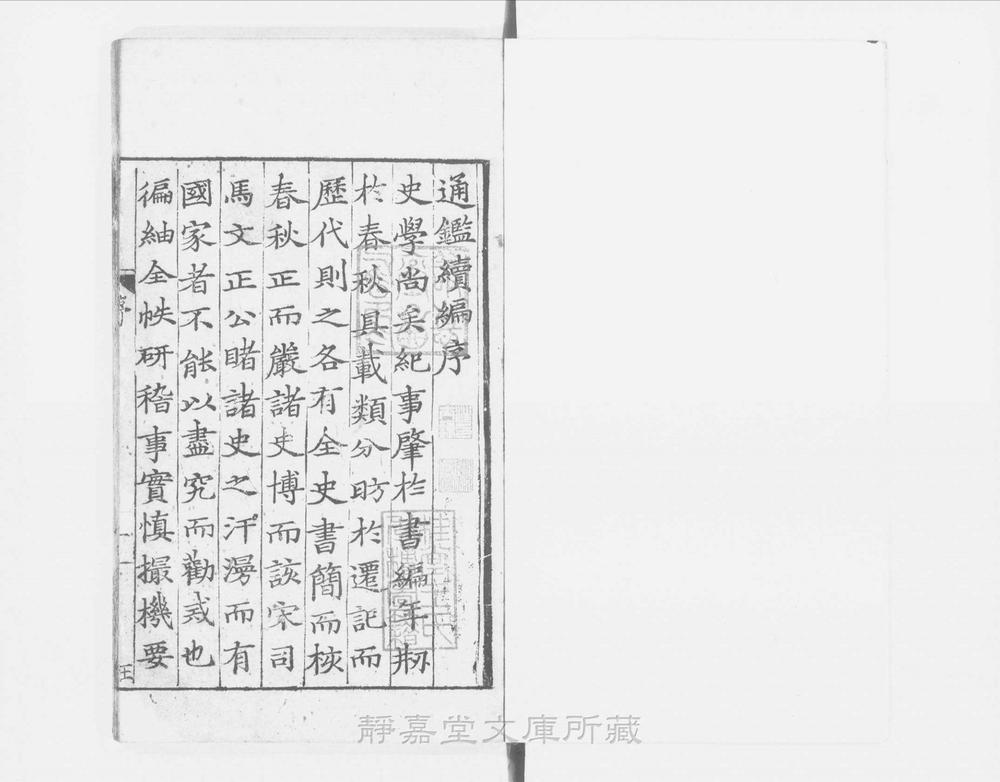 通鑑續編序
史學尚矣紀事肈於書編年剙
於春秋具載類分昉於遷記而
歷代則之各有全史書簡而核
春秋正而嚴諸史博而該宋司
馬文正公睹諸史之汗漫而有
國家者不能以盡究而勸戒也
徧紬全帙研稽事實慎撮機要
序
一
王
靜嘉堂文庫所藏